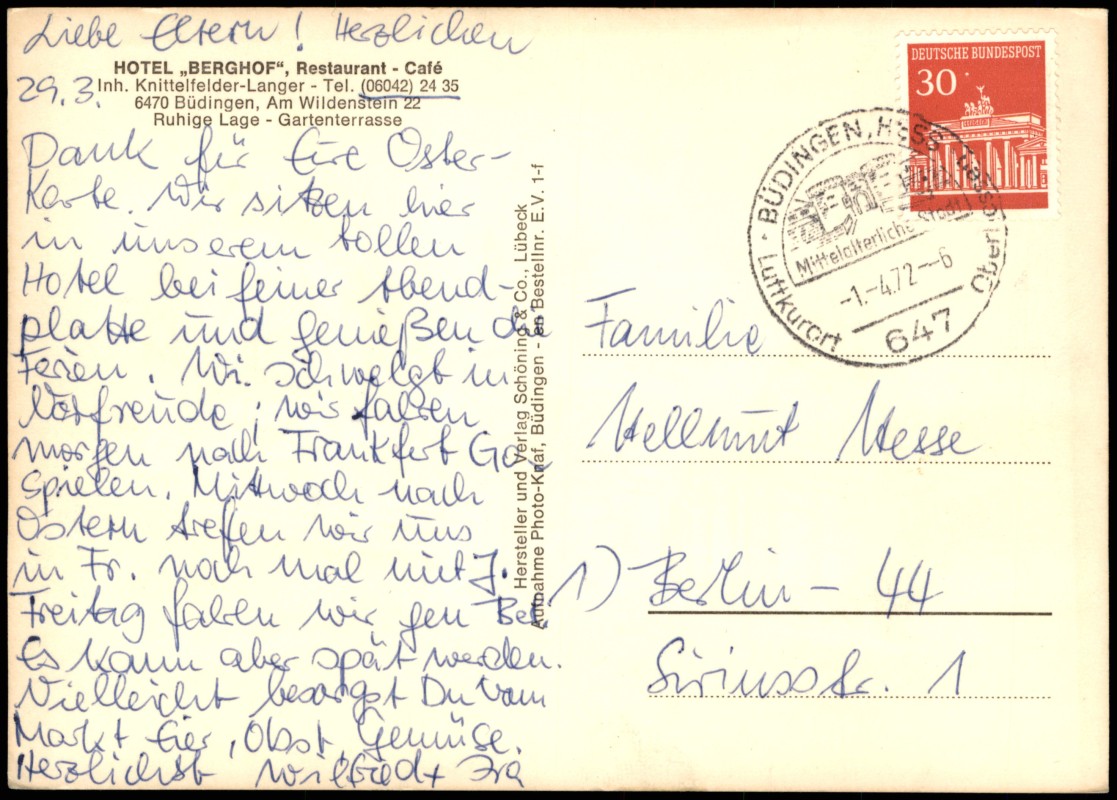 Liebe Eltern! Herzlichen
HOTEL „BERGHOF“, Restaurant - Café
29.3.
Inh. Knittelfelder-Langer - Tel. (06042) 24 35
6470 Büdingen, Am Wildenstein 22
Ruhige Lage - Gartenterrasse
Dank für Eure Oster-
Karte. Wir sitzen hier
in unserem tollen
Hotel bei feiner Abend-
platte und genießen die
Ferien. Wi. schwelgt in
Vorfreude; wir fahren
morgen nach Frankfurt Go-
Spielen. Mittwoch nach
Ostern treffen wir uns
in Fr. noch mal mit J.
Freitag fahren wir gen Ber
Es kann aber spät werden.
Vielleicht besorgst Du vom
Markt Eier, Obst, Gemüse.
Herzlichst Wilfried +
Hersteller und Verlag Schöning & Co., Lübeck
Aufnahme Photo-Knaf, Büdingen - en Bestellnr. E.V. 1-f
DEUTSCHE BUNDESPOST
30
BÜDINGEN, HESS
Mittelalterliche Stadt
-1.-4.72--6
Luftkurort
647
Familie
Hellmut Hesse
1) Berlin - 44
Siriusstr. 1